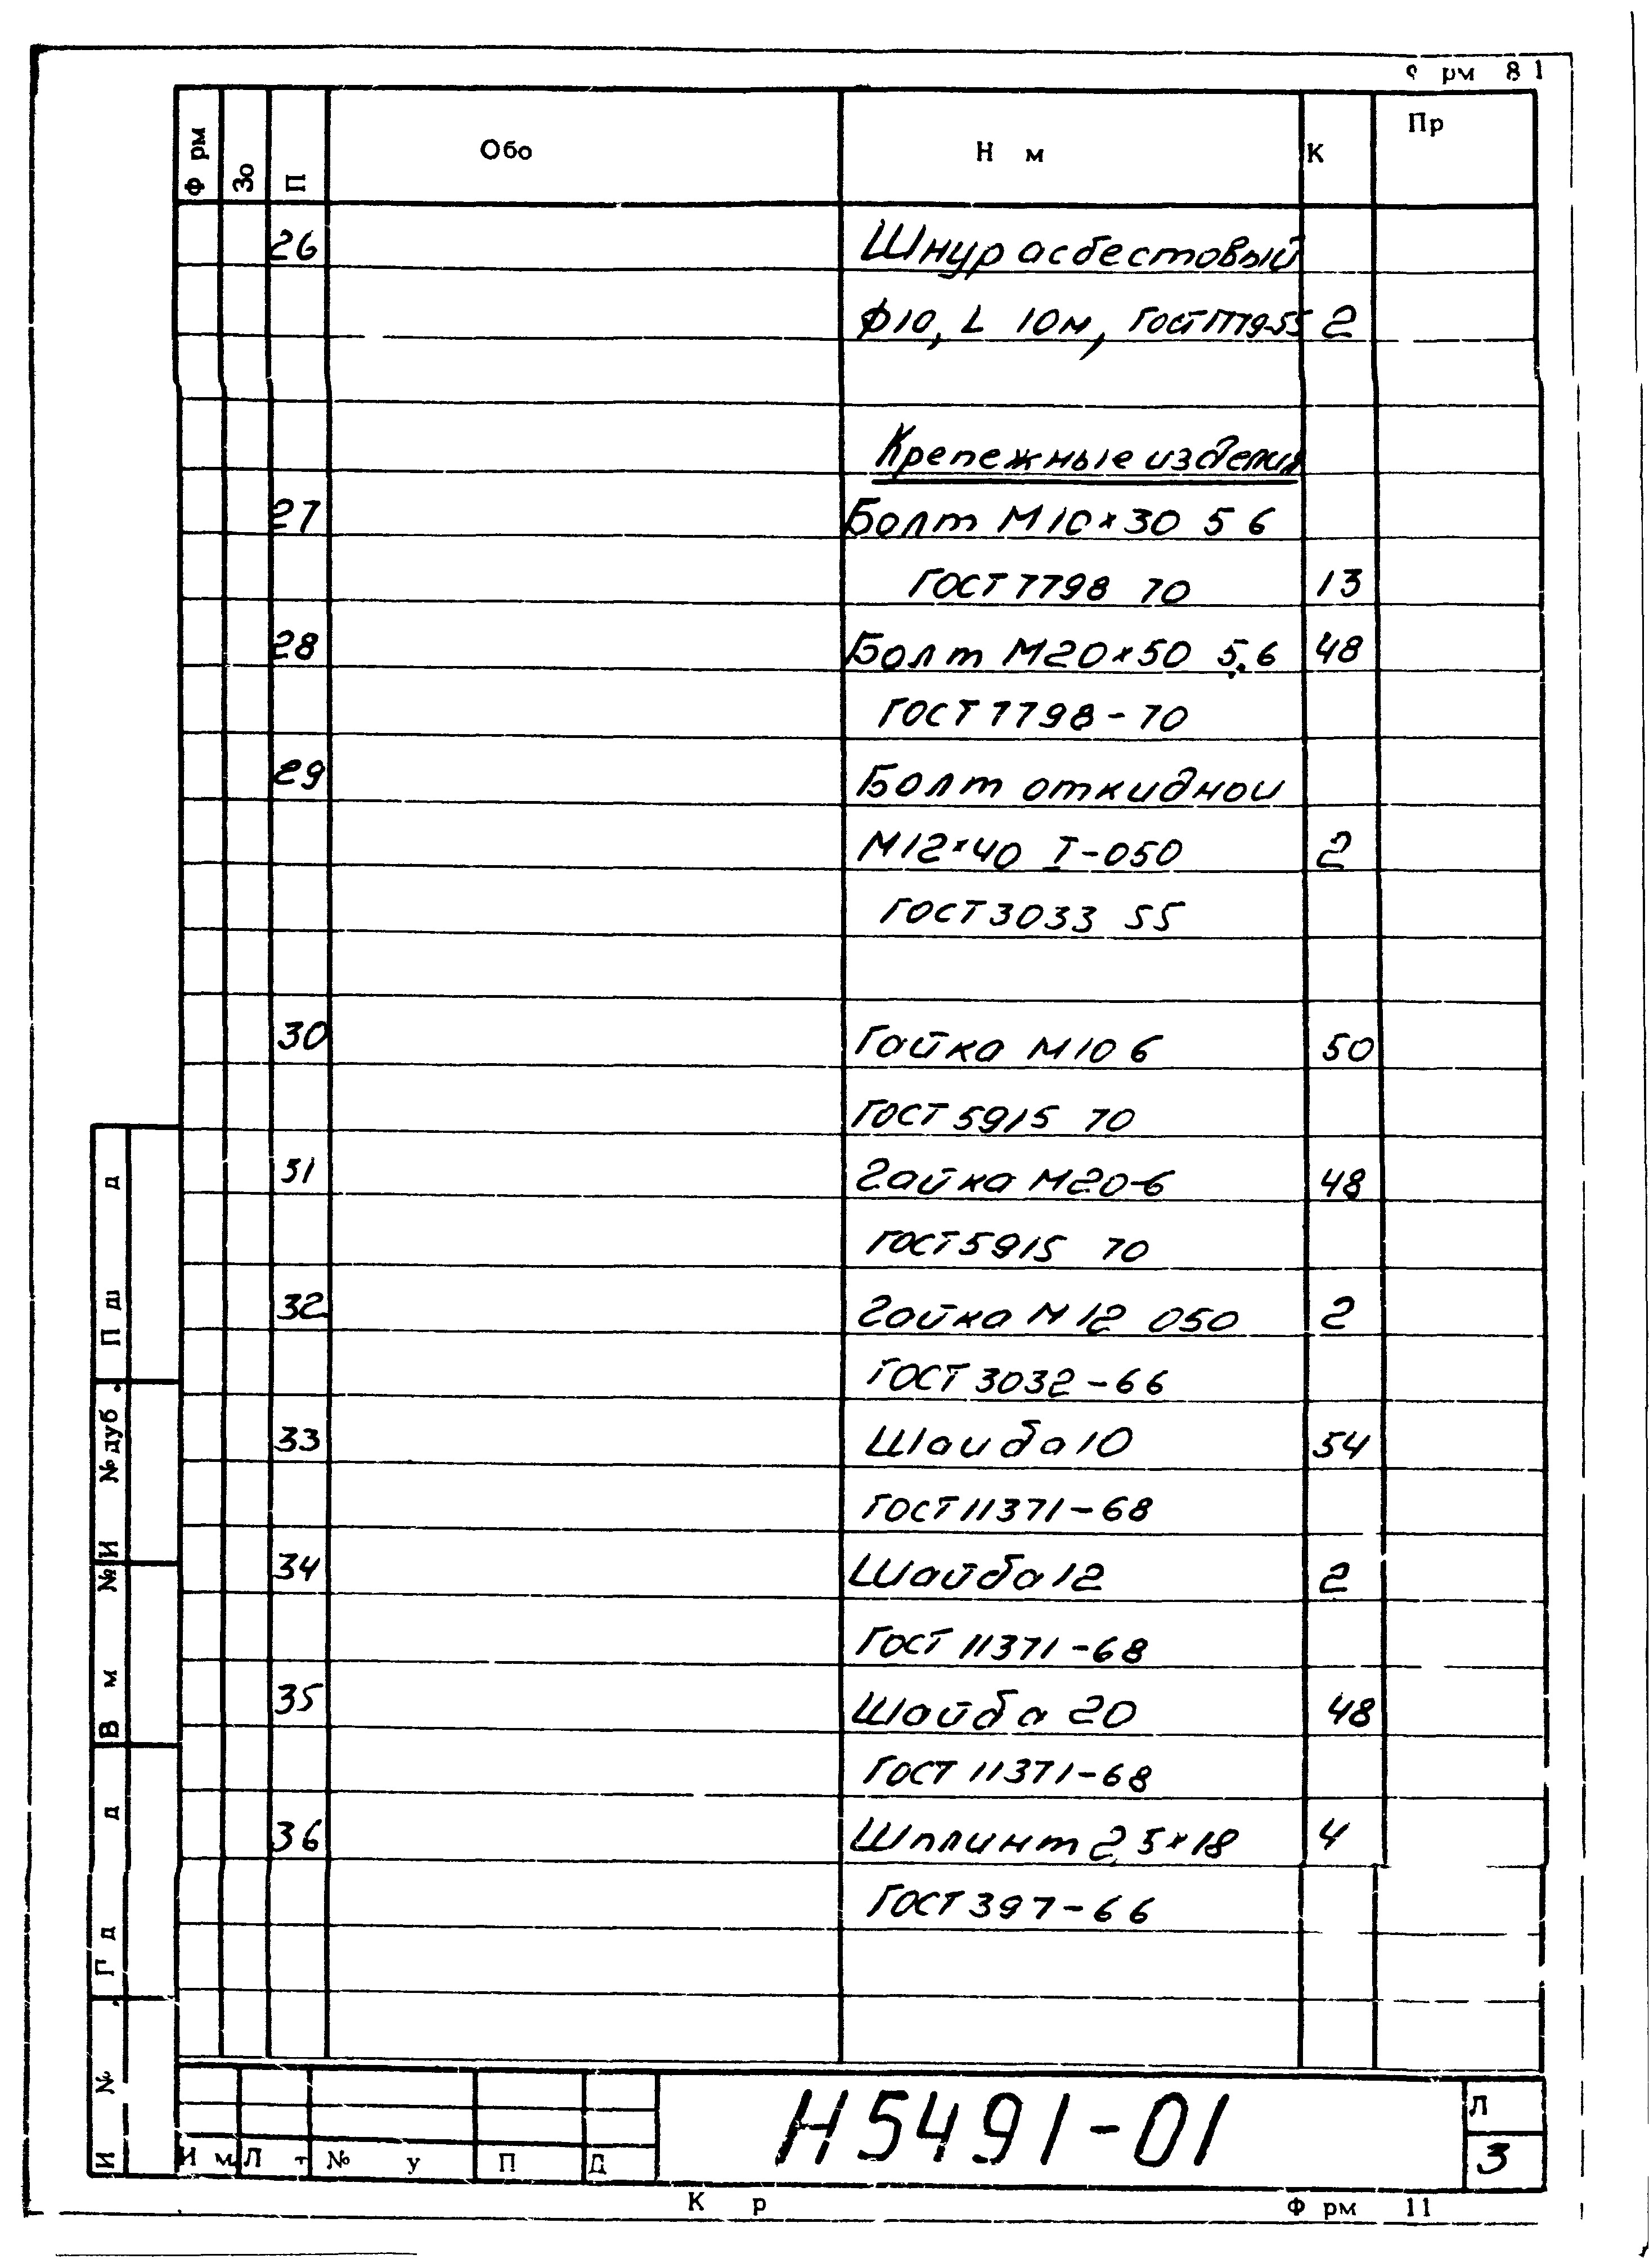 рм 81
Ф рм Зо П Обо Н м К Пр
26 Шнур асбестовый
ф10, L 10м, ГОСТ1779-55 2
Крепежные изделия
27 Болт М10×30 5 6
ГОСТ 7798 70 13
28 Болт М20×50 5.6 48
ГОСТ 7798-70
29 Болт откиднои
М12×40 I-050 2
ГОСТ 3033 55
30 Гайка М10 6 50
ГОСТ 5915 70
31 Гайка М20-6 48
ГОСТ 5915 70
32 Гайка М12 050 2
ГОСТ 3032-66
33 Шаиба 10 54
ГОСТ 11371-68
34 Шайба 12 2
ГОСТ 11371-68
35 Шайба 20 48
ГОСТ 11371-68
36 Шплинт 2,5×18 4
ГОСТ 397-66
И № Г д д В м № И № дуб. П ш д
И м Л т № у П Д
Н5491-01
Л
3
К р Ф рм 11